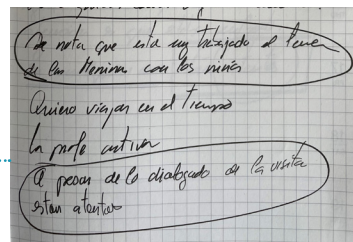 Se nota que está muy trabajado el
de las Meninas con los niños
Quiero viajar en el Tiempo
La profe activa
A pesar de lo dialogado de la visita
están atentos